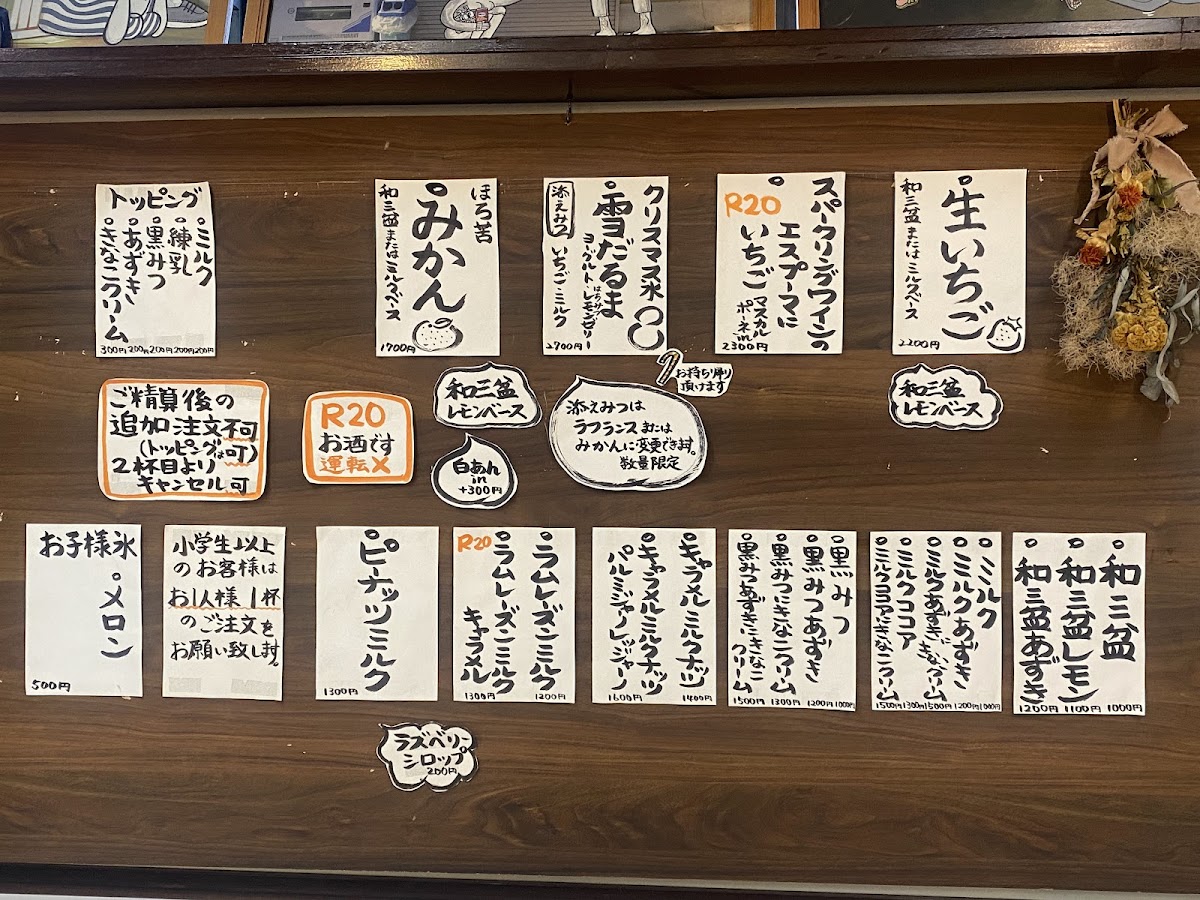 トッピング
・ミルク
・練乳
・黒みつ
・あずき
・きなこクリーム
300円 200円 200円 200円 200円
ほろ苦
みかん
和三盆またはミルクベース
1700円
クリスマス氷
雪だるま
ヨーグルト・レモンゼリー
はちみつ
添えみつ
いちご・ミルク
2700円
スパークリングワインの
エスプーマに
いちご
マスカルポーネin
R20
2300円
生いちご
和三盆またはミルクベース
2200円
ご精算後の
追加注文不可
(トッピングは可)
2杯目より
キャンセル可
R20
お酒です
運転×
和三盆
レモンベース
白あん
in
+300円
お持ち帰り
頂けます
添えみつは
ラフランスまたは
みかんに変更できます。
数量限定
和三盆
レモンベース
お子様氷
・メロン
500円
小学生以上
のお客様は
お1人様1杯
のご注文を
お願い致します
ピーナッツミルク
1300円
R20
ラムレーズンミルク
ラムレーズンミルク
キャラメル
1300円 1200円
キャラメルミルクナッツ
キャラメルミルクナッツ
パルミジャーノレッジャーノ
1600円 1400円
黒みつ
黒みつあずき
黒みつきなこクリーム
黒みつあずききなこ
クリーム
1500円 1300円 1200円 1000円
ミルク
ミルクあずき
ミルクあずききなこクリーム
ミルクココア
ミルクココアきなこクリーム
1500円 1300円 1500円 1200円 1000円
和三盆
和三盆レモン
和三盆あずき
1200円 1100円 1000円
ラズベリー
シロップ
200円